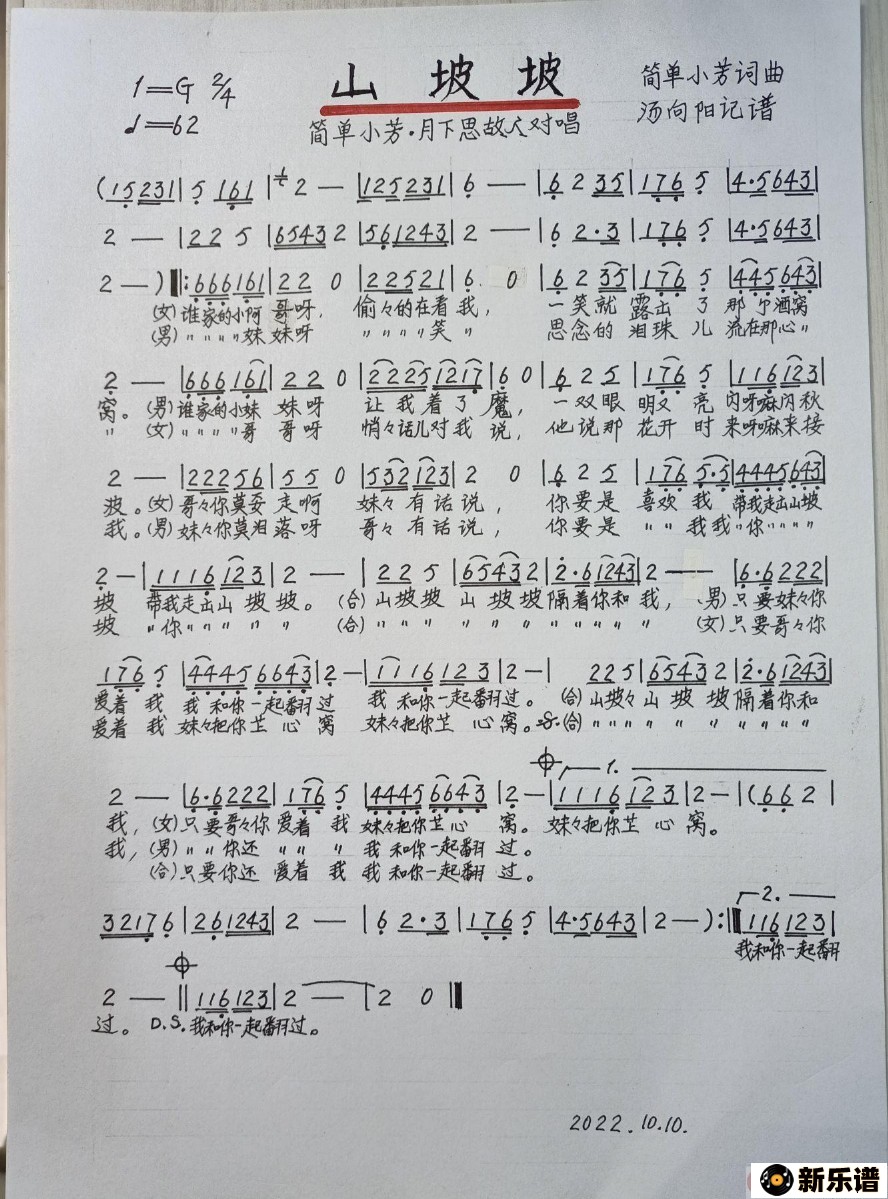 1=G 2/4
♩=62
山坡坡
简单小芳·月下思故人对唱
简单小芳词曲
汤向阳记谱
(15231|5 161|2 —|125231|6 —|6 2 35|176 5|4·5643|
2 —|22 5|6543 2|561243|2 —|6 2·3|176 5|4·5643|
2 —)‖:666161|22 0|22521|6. 0|6 2 35|176 5|445643|
(女)谁家的小阿 哥呀, 偷々的在看 我, 一笑就 露出 了 那个酒窝
(男)〃〃〃〃妹 妹呀 〃〃〃〃笑〃 思念的 泪珠 儿 流在那心〃
2 —|666161|22 0|22251217|6 0|6 2 5|176 5|116123|
窝。(男)谁家的小妹 妹呀 让我着了魔, 一双眼 明又 亮 闪呀嘛闪秋
〃 (女)〃〃〃〃哥 哥呀 悄々话儿对我 说, 他说那 花开 时 来呀嘛来接
2 —|22256|55 0|532123|2 0|6 2 5|176 5·5|4445643|
波。(女)哥々你莫要 走啊 妹々有话说, 你要是 喜欢 我 带我走出山坡
我。(男)妹々你莫泪 落呀 哥々有话说, 你要是 〃〃 我我〃你〃〃〃〃
2 —|1116 123|2 —|22 5|6543 2|2·61243|2 —|6·6222|
坡 带我走出山 坡 坡。(合)山坡坡 山 坡 坡 隔着你和 我, (男)只要妹々你
坡 〃你〃〃〃〃〃 (合)〃〃〃〃〃〃〃〃〃〃〃 (女)只要哥々你
176 5|4445 6643|2 —|1116 123|2 —|225|6543 2|2·61243|
爱着 我 我 和你一起翻 过 我 和你一起翻过。(合)山坡々山 坡 坡 隔着你和
爱着 我 妹々把你芷 心 窝 妹々把你芷 心 窝。𝄋(合)〃〃〃〃〃〃〃〃〃〃
1.
2 —|6·6222|176 5|4445 6643|2 —|1116 123|2 —|(66 2|
我,(女)只要哥々你 爱着 我 妹々把你芷 心 窝。妹々把你芷 心 窝。
我,(男)〃〃你还 〃〃〃 我 和你一起翻 过。
(合)只要你还 爱着 我 我 和你一起翻 过。
2.
3217 6|261243|2 —|6 2·3|176 5|4·5643|2 —):‖116123|
我和你一起翻
2 —‖116123|2 —|2 0‖
过。D.S.我和你一起翻过。
2022.10.10.
新乐谱